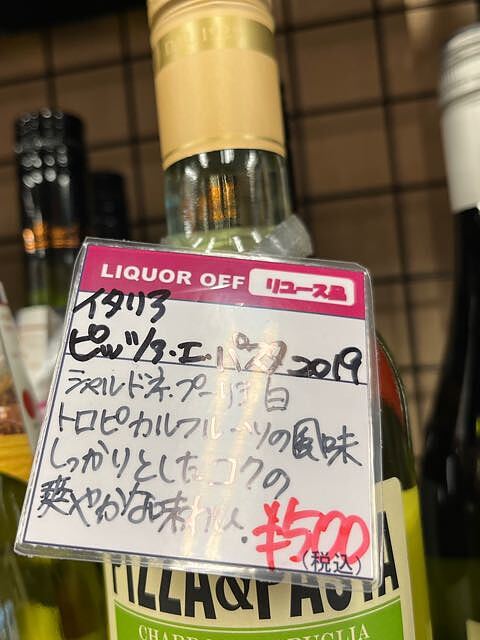 LIQUOR OFF リユース品
イタリア
ピッツァ・エ・パスタ 2019
シャルドネ・プーリア 白
トロピカルフルーツの風味
しっかりとしたコクの
爽やかな味わい.
¥500
(税込)
PIZZA&PASTA